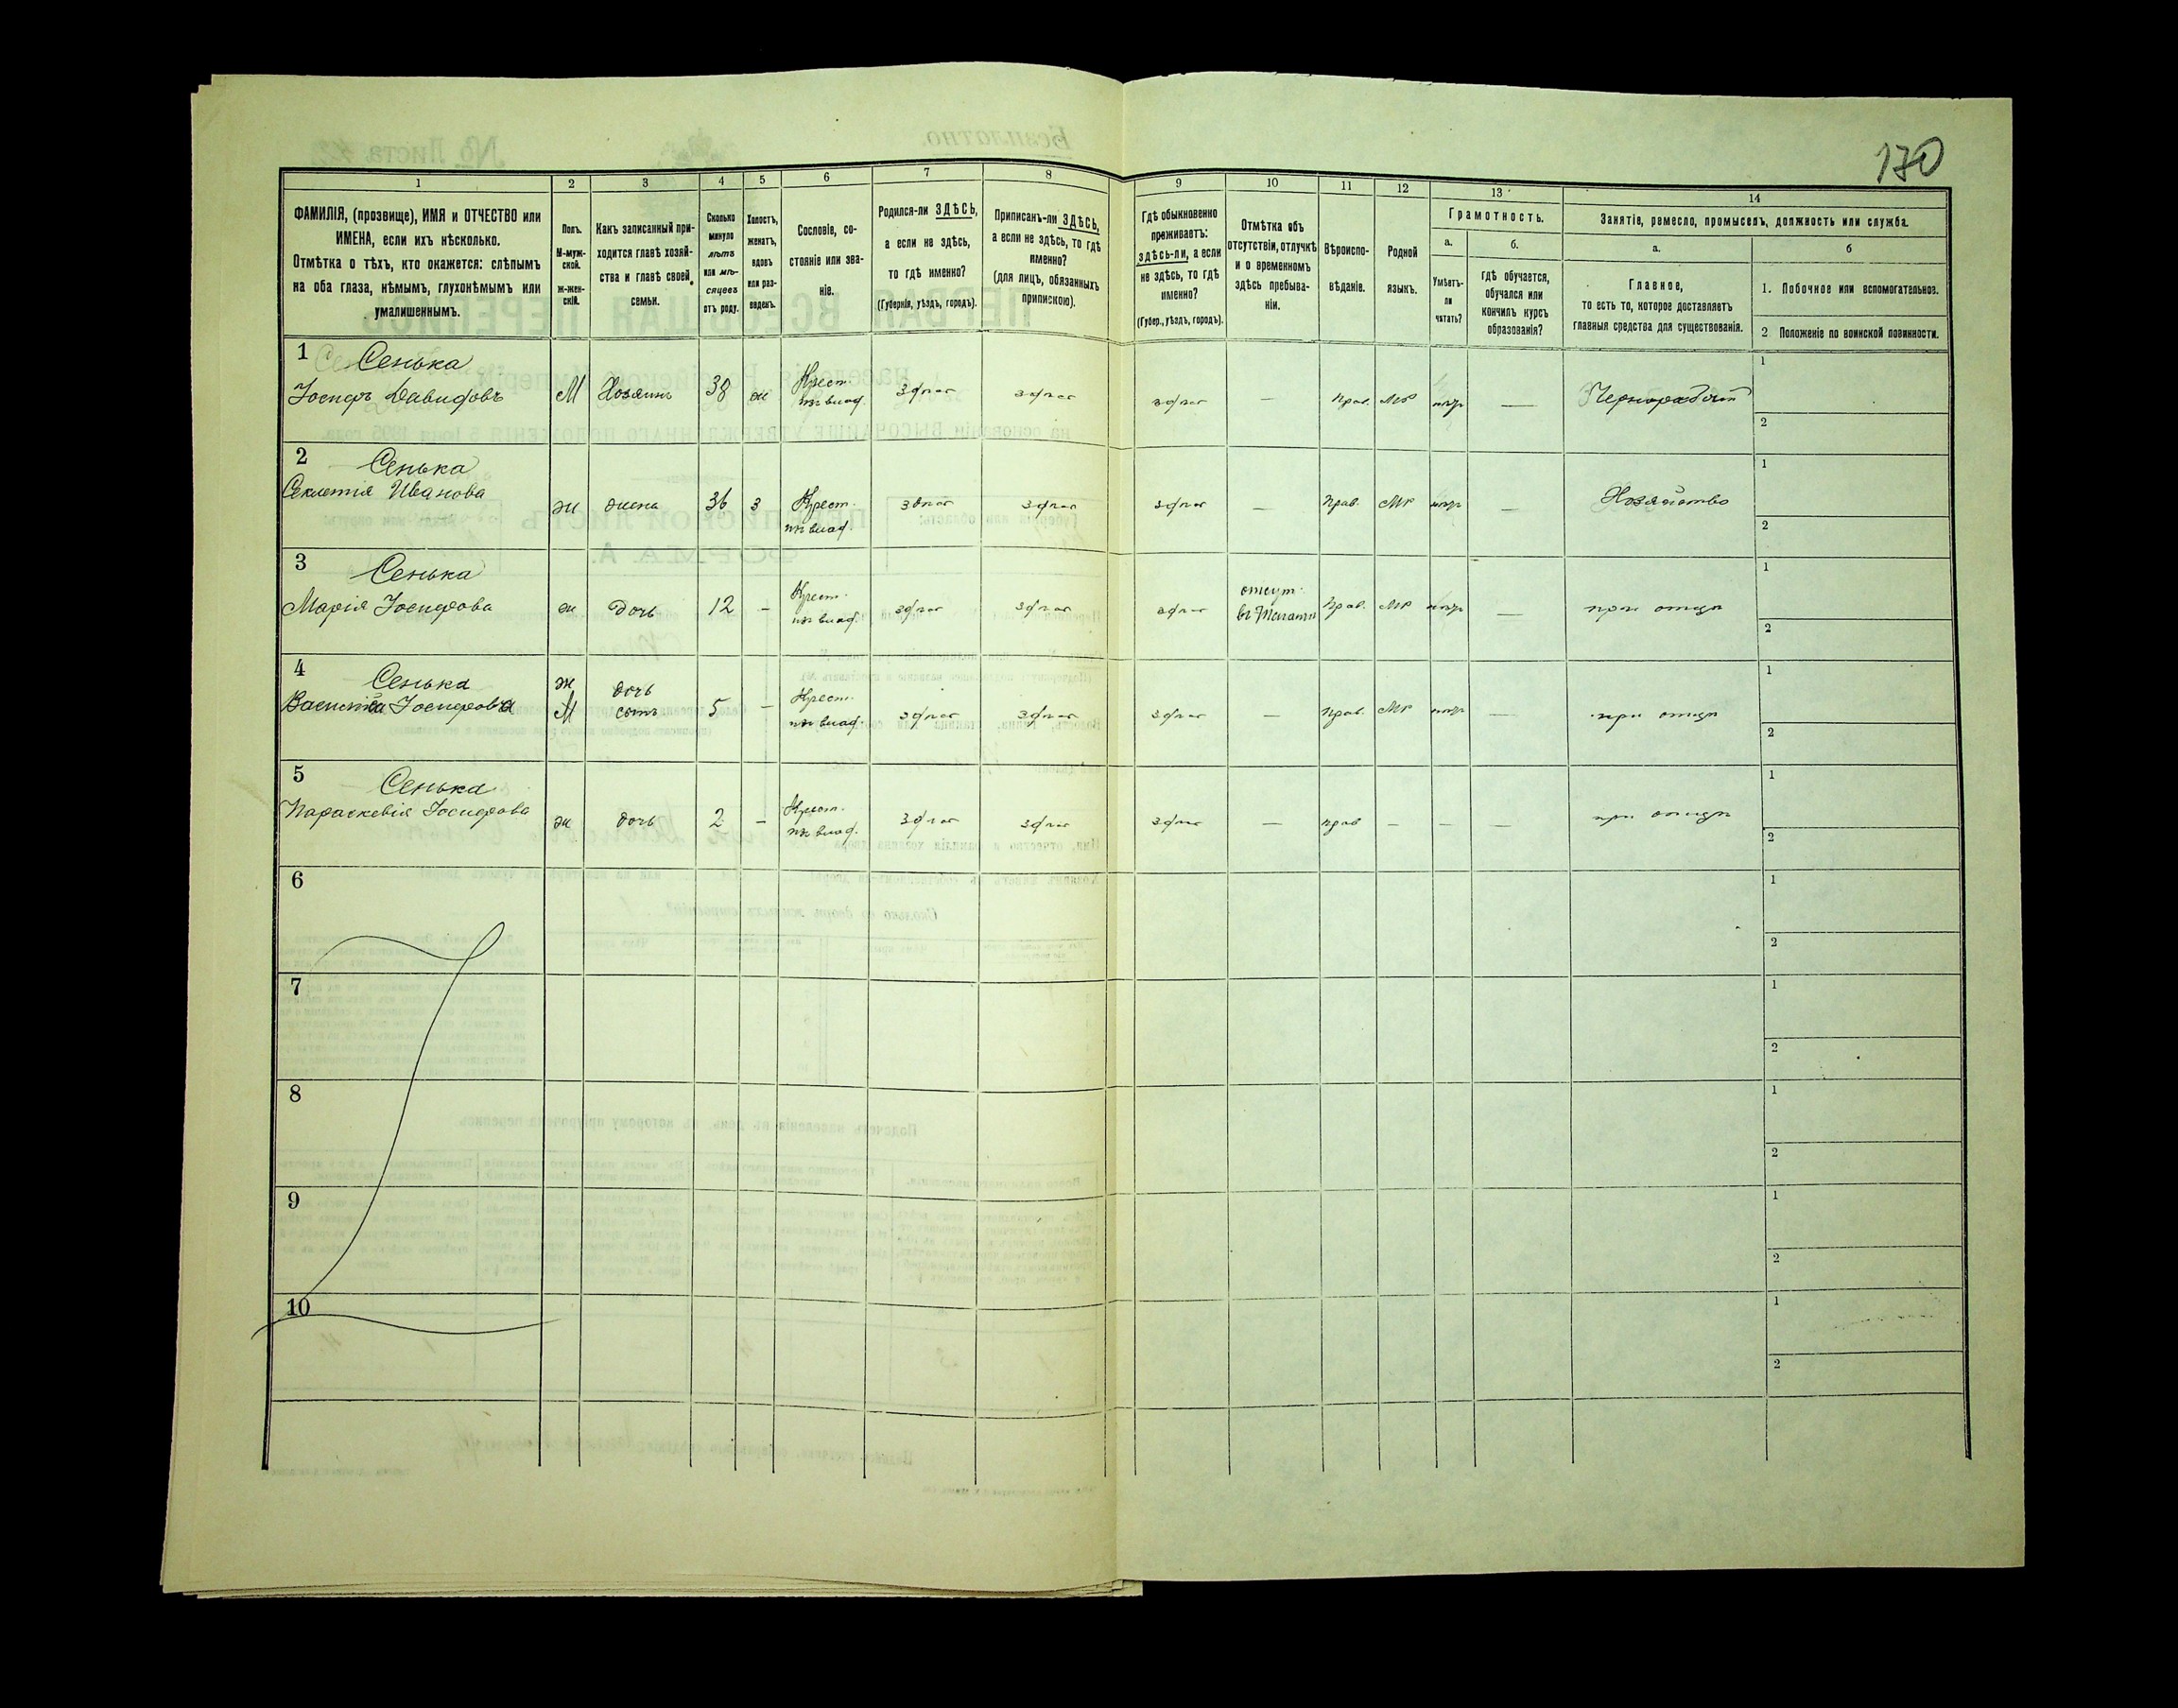 170
1
2
3
4
5
6
7
8
9
10
11
12
13
14
ФАМИЛІЯ, (прозвище), ИМЯ и ОТЧЕСТВО или
ИМЕНА, если ихъ нѣсколько.
Отмѣтка о тѣхъ, кто окажется: слѣпымъ
на оба глаза, нѣмымъ, глухонѣмымъ или
умалишеннымъ.
Полъ.
М-муж-
ской.
ж-жен-
скій.
Какъ записанный при-
ходится главѣ хозяй-
ства и главѣ своей
семьи.
Сколько
минуло
лѣтъ
или мѣ-
сяцевъ
отъ роду.
Холостъ,
женатъ,
вдовъ
или раз-
веденъ.
Сословіе, со-
стояніе или зва-
ніе.
Родился-ли ЗДѢСЬ,
а если не здѣсь,
то гдѣ именно?
(Губернія, уѣздъ, городъ).
Приписанъ-ли ЗДѢСЬ,
а если не здѣсь, то гдѣ
именно?
(для лицъ, обязанныхъ
припискою).
Гдѣ обыкновенно
проживаетъ:
здѣсь-ли, а если
не здѣсь, то гдѣ
именно?
(Губер., уѣздъ, городъ).
Отмѣтка объ
отсутствіи, отлучкѣ
и о временномъ
здѣсь пребыва-
ніи.
Вѣроиспо-
вѣданіе.
Родной
языкъ.
Грамотность.
а.
Умѣетъ-
ли
читать?
б.
гдѣ обучается,
обучался или
кончилъ курсъ
образованія?
Занятіе, ремесло, промыселъ, должность или служба.
а.
Главное,
то есть то, которое доставляетъ
главныя средства для существованія.
б
1. Побочное или вспомогательное.
2 Положеніе по воинской повинности.
1 Сенька
Іосифъ Давидовъ М Хозяинъ 38 ж Крест. изъ влад. здѣсь здѣсь здѣсь — Прав. Мр нѣтъ — Чернорабочій
1
2
2 Сенька
Секлетія Иванова ж жена 36 з Крест. изъ влад. здѣсь здѣсь здѣсь — Прав. Мр нѣтъ — Хозяйство
1
2
3 Сенька
Марія Іосифова ж дочь 12 — Крест. изъ влад. здѣсь здѣсь здѣсь отсут. Прав. Мр нѣтъ — при отцѣ
1
2
4 Сенька ж дочь
Іосифова М сынъ 5 — Крест. изъ влад. здѣсь здѣсь здѣсь — Прав. Мр нѣтъ — при отцѣ
1
2
5 Сенька
Параскевія Іосифова ж дочь 2 — Крест. изъ влад. здѣсь здѣсь здѣсь — Прав — — — при отцѣ
1
2
6
1
2
7
1
2
8
1
2
9
1
2
10
1
2